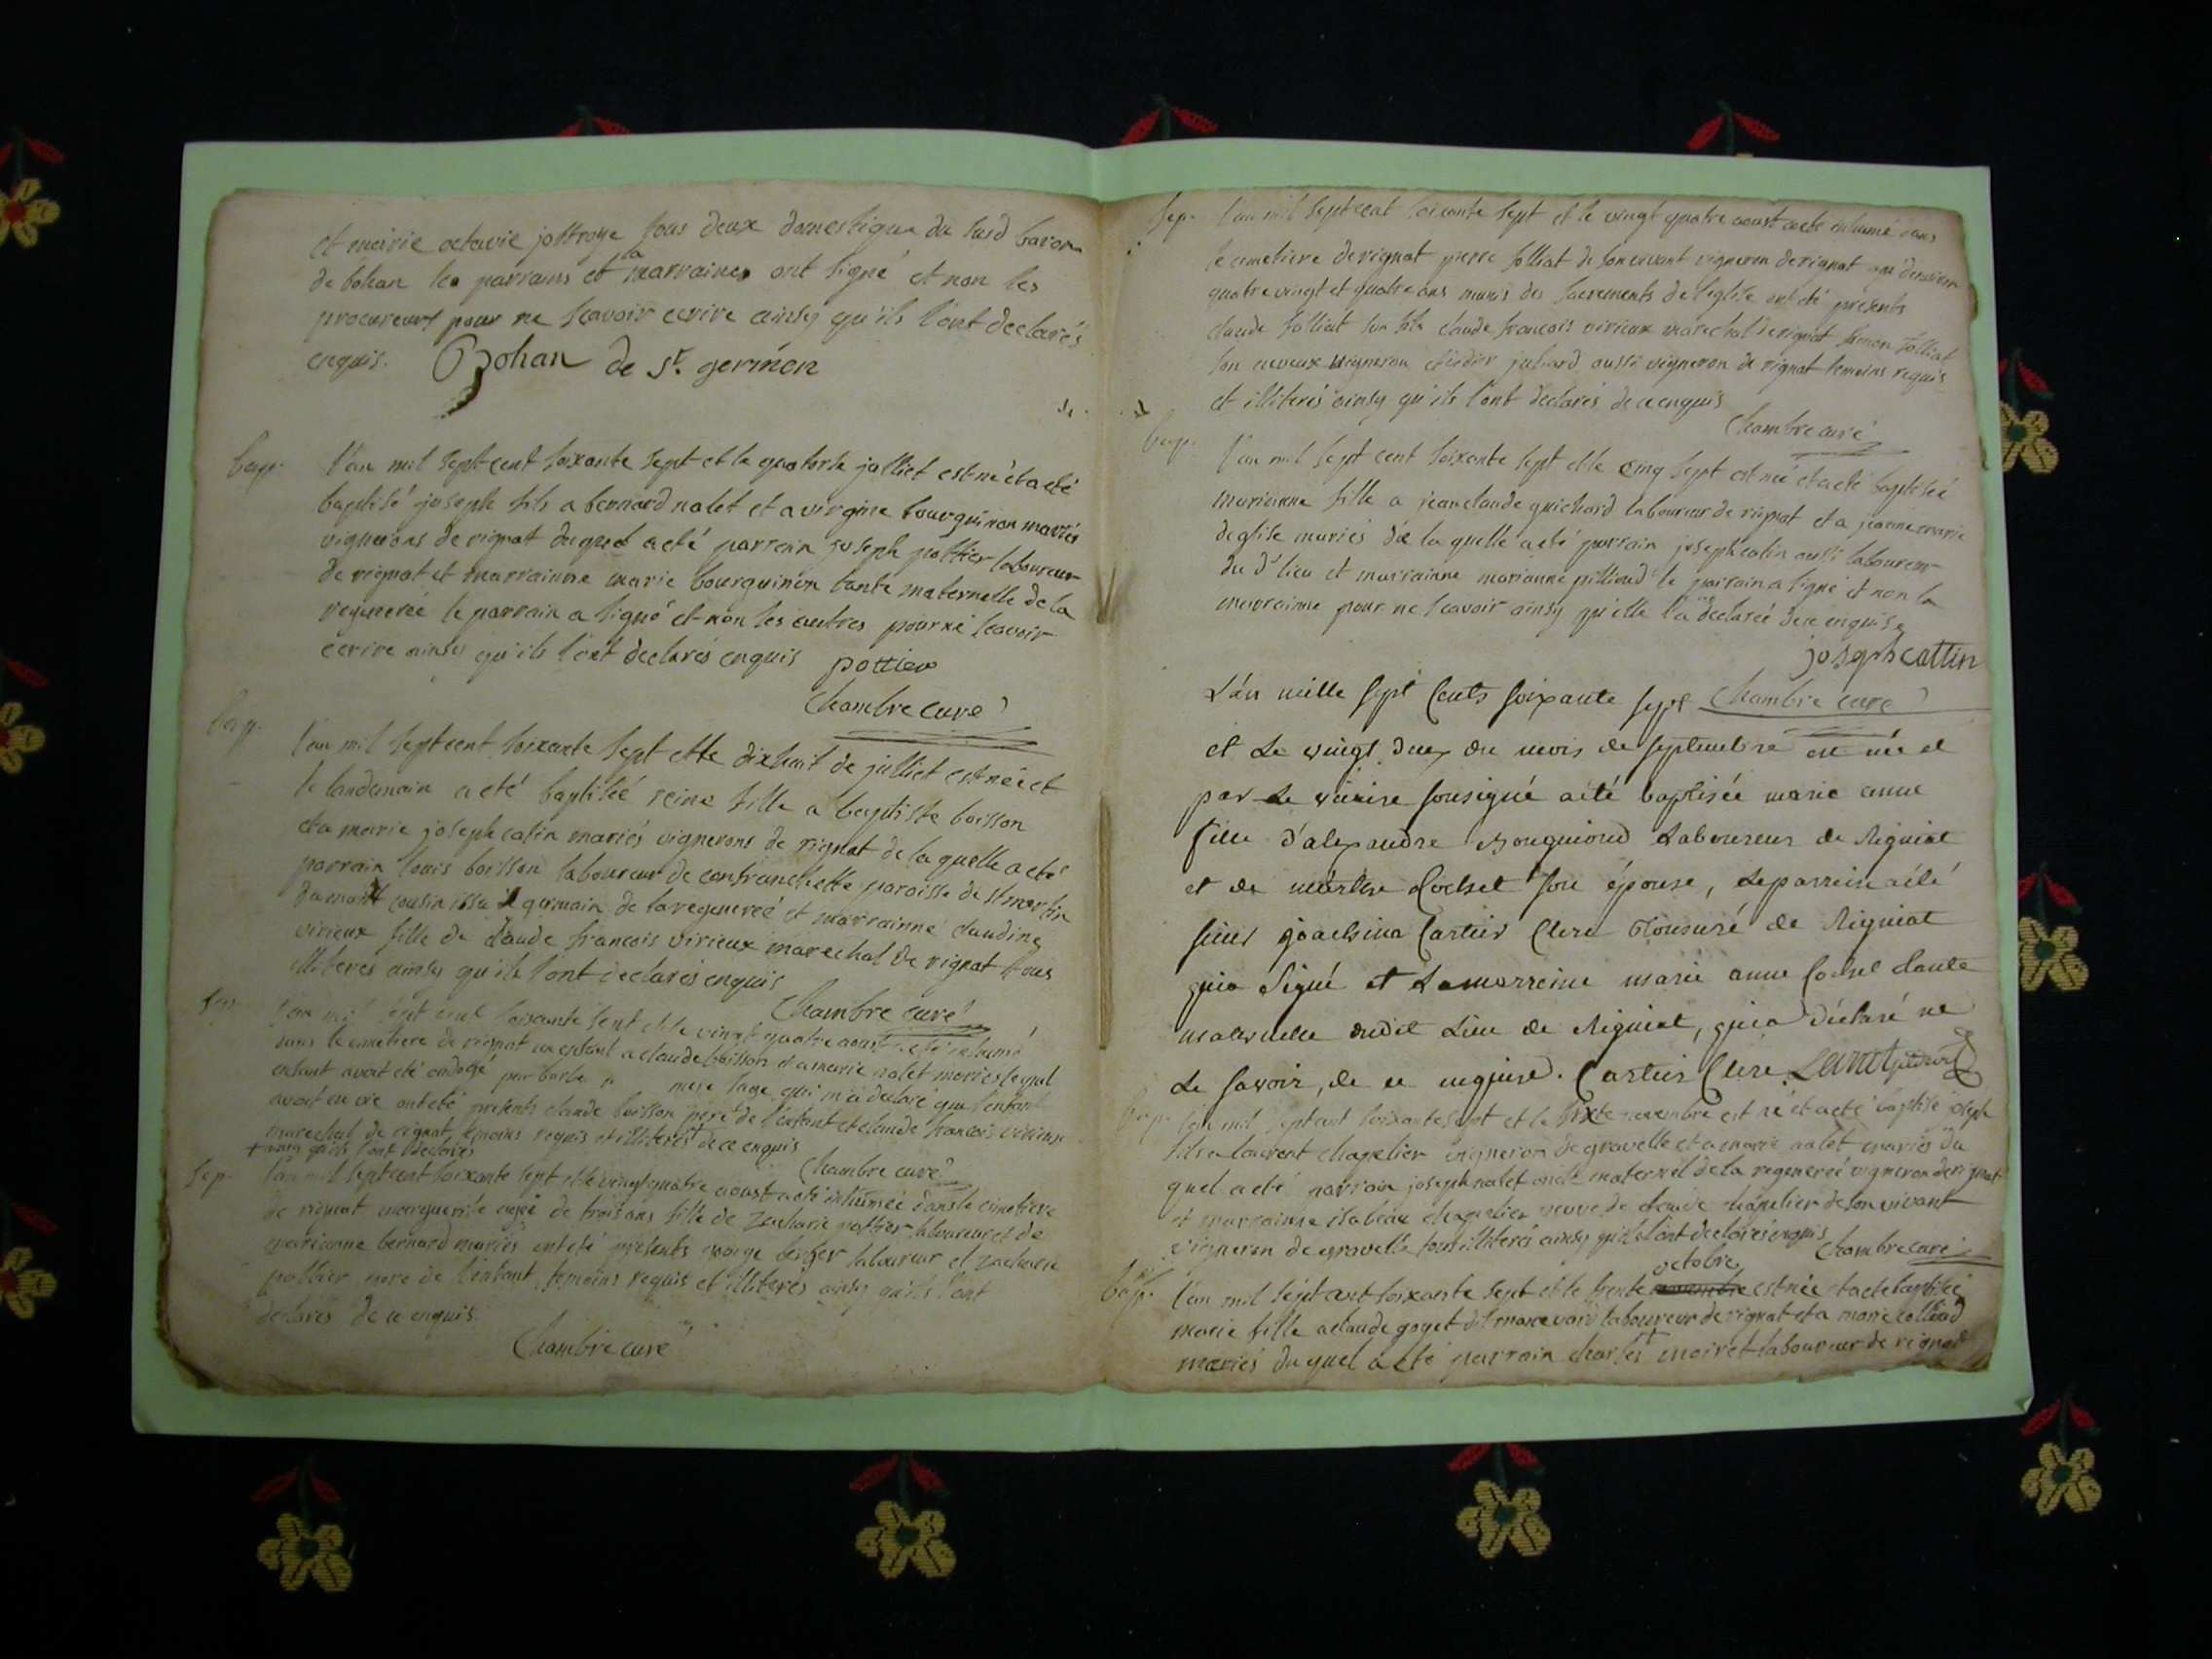 et marie octavie joffroye tous deux domestique du susd baron
de bohan les parrains et la marraines ont signé et non les
procureurs pour ne scavoir ecrire ainsy qu'ils l'ont declarés
enquis. Bohan de St. germen
bap. l'an mil sept cent soixante sept et le quatorse julliet est né et a eté
baptisé joseph fils a bernard nalet et a virgine bourguinon mariés
vignerons de rignat duquel a eté parrain joseph pottier laboureur
de rignat et marrainne marie bourguinon tante maternelle de la
regenereé le parrain a signé et non les autres pour ne scavoir
ecrire ainsy qu'ils l'ont declarés enquis pottier
Chambre curé
bap. l'an mil sept cent soixante sept et le dixhuit de julliet est neé et
le landemain a eté baptiseé reine fille a baptiste boisson
et a marie joseph catin mariés vignerons de rignat de la quelle a eté
parrain louis boisson laboureur de confranchette paroisse de st martin
du mont cousin issu de germain de la regenereé et marrainne claudine
virieux fille de claude francois virieux marechal de rignat tous
illiterés ainsy qu'ils l'ont declarés enquis
Chambre curé
l'an mil sept cent soixante sept et le vingt quatre aoust a eté inhumé
dans le cimetiere de rignat un enfant a claude boisson et a marie nalet mariés lequel
enfant avoit eté ondoyé par barbe mere sage qui m'a declaré que l'enfant
avoit eu vie ont eté presents claude boisson pere de l'enfant et claude francois virieux
marechal de rignat temoins requis et illiterés + de ce enquis
+ ainsy qu'ils l'ont declarés
Chambre curé
sep. l'an mil sept cent soixante sept et le vingt quatre aoust a eté inhumeé dans le cimetiere
de rignat marguerite ageé de trois ans fille de zacharie pottier laboureur et de
marianne bernard mariés ont eté presents laboureur et zacharie
pottier pere de l'enfant temoins requis et illiterés ainsy qu'ils l'ont
declarés de ce enquis
Chambre curé
sep. l'an mil sept cent soixante sept et le vingt quatre aoust a eté inhumé dans
le cimetiere de rignat pierre folliat de son vivant vigneron de rignat agé d'environ
quatre vingt et quatre ans munis des sacrements de l'eglise ont eté presents
claude folliat son fils claude francois virieux marechal de rignat simon folliat
son neveux vigneron et jullard aussi vigneron de rignat temoins requis
et illiterés ainsy qu'ils l'ont declarés de ce enquis
Chambre curé
bap. l'an mil sept cent soixante sept et le cinq sept est neé et a eté baptiseé
marianne fille a jean claude guichard laboureur de rignat et a jeanne marie
deglise mariés de la quelle a eté parrain joseph catin aussi laboureur
du dt lieu et marrainne marianne pillioud le parrain a signé et non la
marrainne pour ne scavoir ainsy qu'elle l'a declareé de ce enquise
joseph cattin
L'an mille sept Cents soixante sept Chambre curé
et Le vingt deux du mois de septembre est née et
par Le vicaire sousigné a été baptisée marie anne
fille d'alexandre Bouguioud Laboureur de Rigniat
et de marthe Cochet son épouse, Le parrein a été
sieur joachim Cartier Clerc Tonsuré de Rigniat
qui a Signé et La marreine marie anne Cochet tante
maternelle dudit Lieu de Rigniat, qui a déclaré ne
Le savoir, de ce enquise. Cartier Clerc.
bap. l'an mil sept cent soixante sept et le sixte novembre est né et a eté baptisé joseph
fils a laurent chapelier vigneron de gravelle et a marie nalet mariés du
quel a eté parrain joseph nalet oncle maternel de la regenereé vigneron de rignat
et marrainne isabeau chapelier veuve de claude chapelier de son vivant
vigneron de gravelle tous illiterés ainsy qu'ils l'ont declarés enquis Chambre curé
octobre
bap. l'an mil sept cent soixante sept et le trente novembre est neé et a eté baptiseé
marie fille a claude goyet dit laboureur de rignat et a marie
mariés du quel a eté parrain charles moiret laboureur de rignat